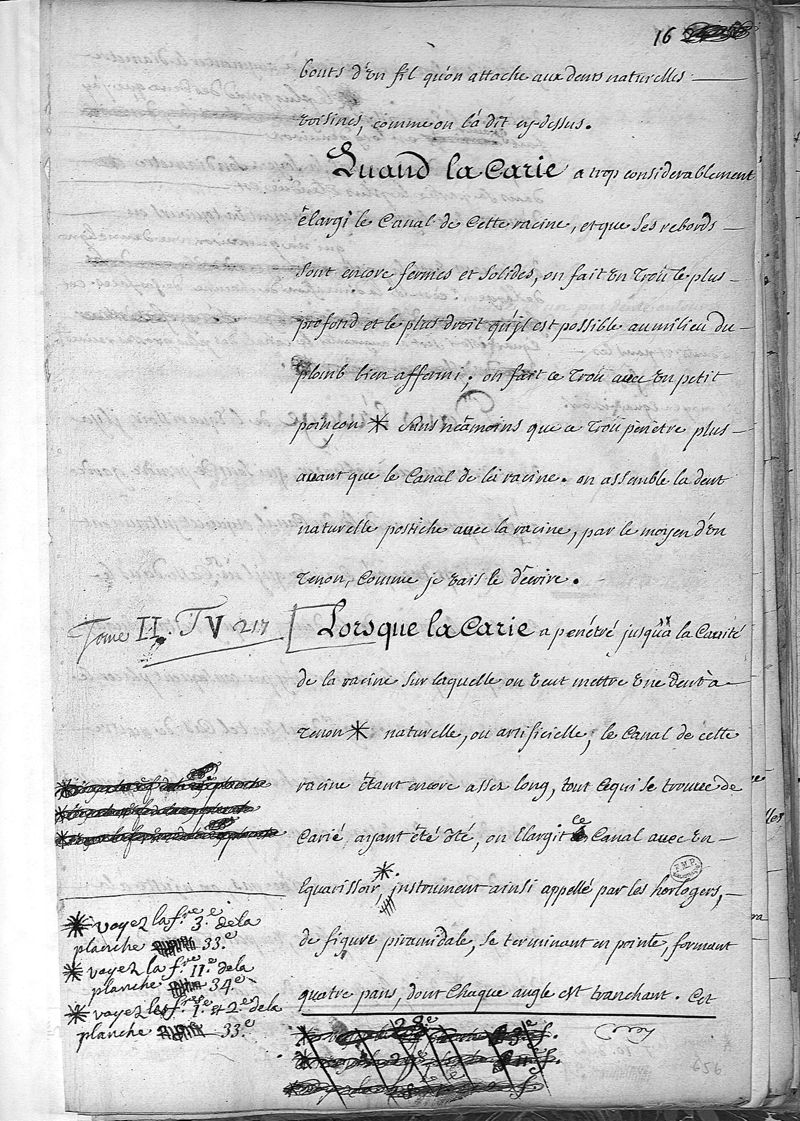 16
bouts d'un fil qu'on attache aux dents naturelles
voisines, comme on l'a dit cy-dessus.
Quand la Carie a trop considerablement
élargi le Canal de Cette racine, et que ses rebords
sont encore fermes et solides, on fait un Trou le plus
profond et le plus droit qu'il est possible au milieu du
plomb bien affermi; on fait ce Trou avec un petit
poinçon * sans néamoins que ce Trou penétre plus
avant que le Canal de la racine. on assemble la dent
naturelle postiche avec la racine, par le moyen d'un
Tenon, comme je vais le décrire.
Tome II. T V 217
Lorsque la Carie a penétré jusqu'à la Cavité
de la racine sur laquelle on veut mettre une dent à
Tenon * naturelle, ou artificielle, le Canal de cette
racine étant encore assés long, tout ce qui se trouve de
Carié ayant été ôté, on Elargit ce Canal avec un
Equarissoir, * instrument ainsi appellé par les horlogers,
de figure piramidale, se terminant en pointe, formant
quatre pans, dont Chaque angle est tranchant. Cet
* voyez la f.re 3.e de la
planche 33.e
* voyez la f.re 11.e de la
planche 34.e
* voyez les f.res 1.e et 2.e de la
planche 33.e
656